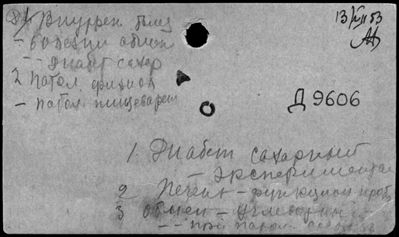 13/VII 53
Внутрен. бол
– болезни обмен
– – Диабет сахар
2 Патол. физиол
– патол. пищеварен
Д 9606
1. Диабет сахарный
– экспериментал
2 Печень – функцион. проб
3 обмен – углеводн
– – при патол.